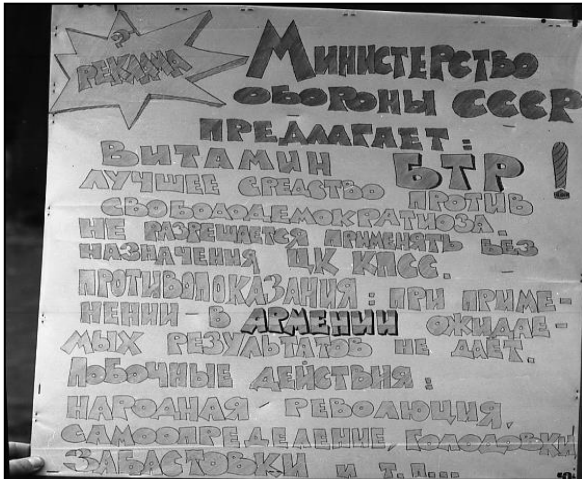 ?
РЕКЛАМА
МИНИСТЕРСТВО
ОБОРОНЫ СССР
ПРЕДЛАГАЕТ:
ВИТАМИН БТР!
ЛУЧШЕЕ СРЕДСТВО ПРОТИВ
СВОБОДОДЕМОКРАТИОЗА.
НЕ РАЗРЕШАЕТСЯ ПРИМЕНЯТЬ БЕЗ
НАЗНАЧЕНИЯ ЦК КПСС.
ПРОТИВОПОКАЗАНИЯ: ПРИ ПРИМЕ-
НЕНИИ В АРМЕНИИ ОЖИДАЕ-
МЫХ РЕЗУЛЬТАТОВ НЕ ДАЁТ.
ПОБОЧНЫЕ ДЕЙСТВИЯ:
НАРОДНАЯ РЕВОЛЮЦИЯ,
САМООПРЕДЕЛЕНИЕ, ГОЛОДОВКИ
ЗАБАСТОВКИ И Т.П...